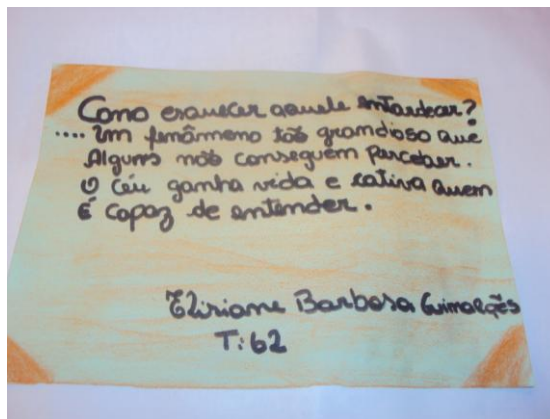 Como esquecer aquele entardecer?
.... Um fenômeno tão grandioso que
Alguns não conseguem perceber.
O céu ganha vida e cativa quem
É capaz de entender.
Elisiane Barbosa Guimarães
T: 62